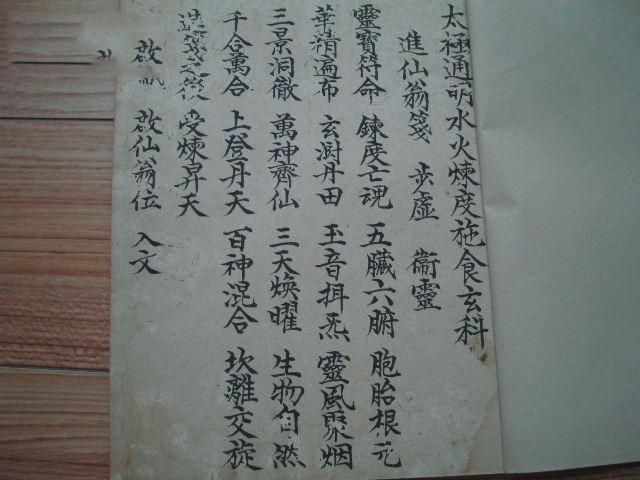 太極通明水火煉度施食玄科
進仙翁箋 步虛 衛靈
靈寶符命 鍊度亡魂 五臟六腑 胞胎根元
華精遍布 玄澍丹田 玉音揖炁 靈風聚烟
三景洞徹 萬神齊仙 三天煥曜 生物自然
千合萬合 上登丹天 百神混合 坎離交旋
受煉昇天
啟 啟仙翁位 入文